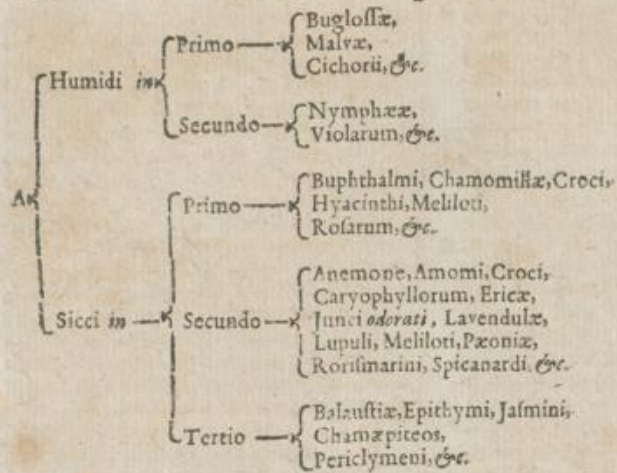 Primo
Buglossæ,
Malvæ,
Cichorii, &c.
Humidi in
Secundo
Nymphææ,
Violarum, &c.
A
Primo
Buphthalmi, Chamomillæ, Croci,
Hyacinthi, Meliloti,
Rosarum, &c.
Sicci in
Secundo
Anemone, Amomi, Croci,
Caryophyllorum, Ericæ,
Junci odorati, Lavendulæ,
Lupuli, Meliloti, Pæoniæ,
Rorismarini, Spicanardi, &c.
Tertio
Balaustiæ, Epithymi, Jasmini,
Chamæpiteos,
Periclymeni, &c.